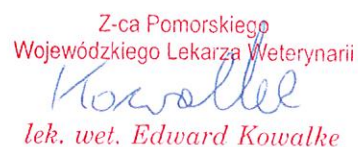 Z-ca Pomorskiego
Wojewódzkiego Lekarza Weterynarii
Kowalke
lek. wet. Edward Kowalke